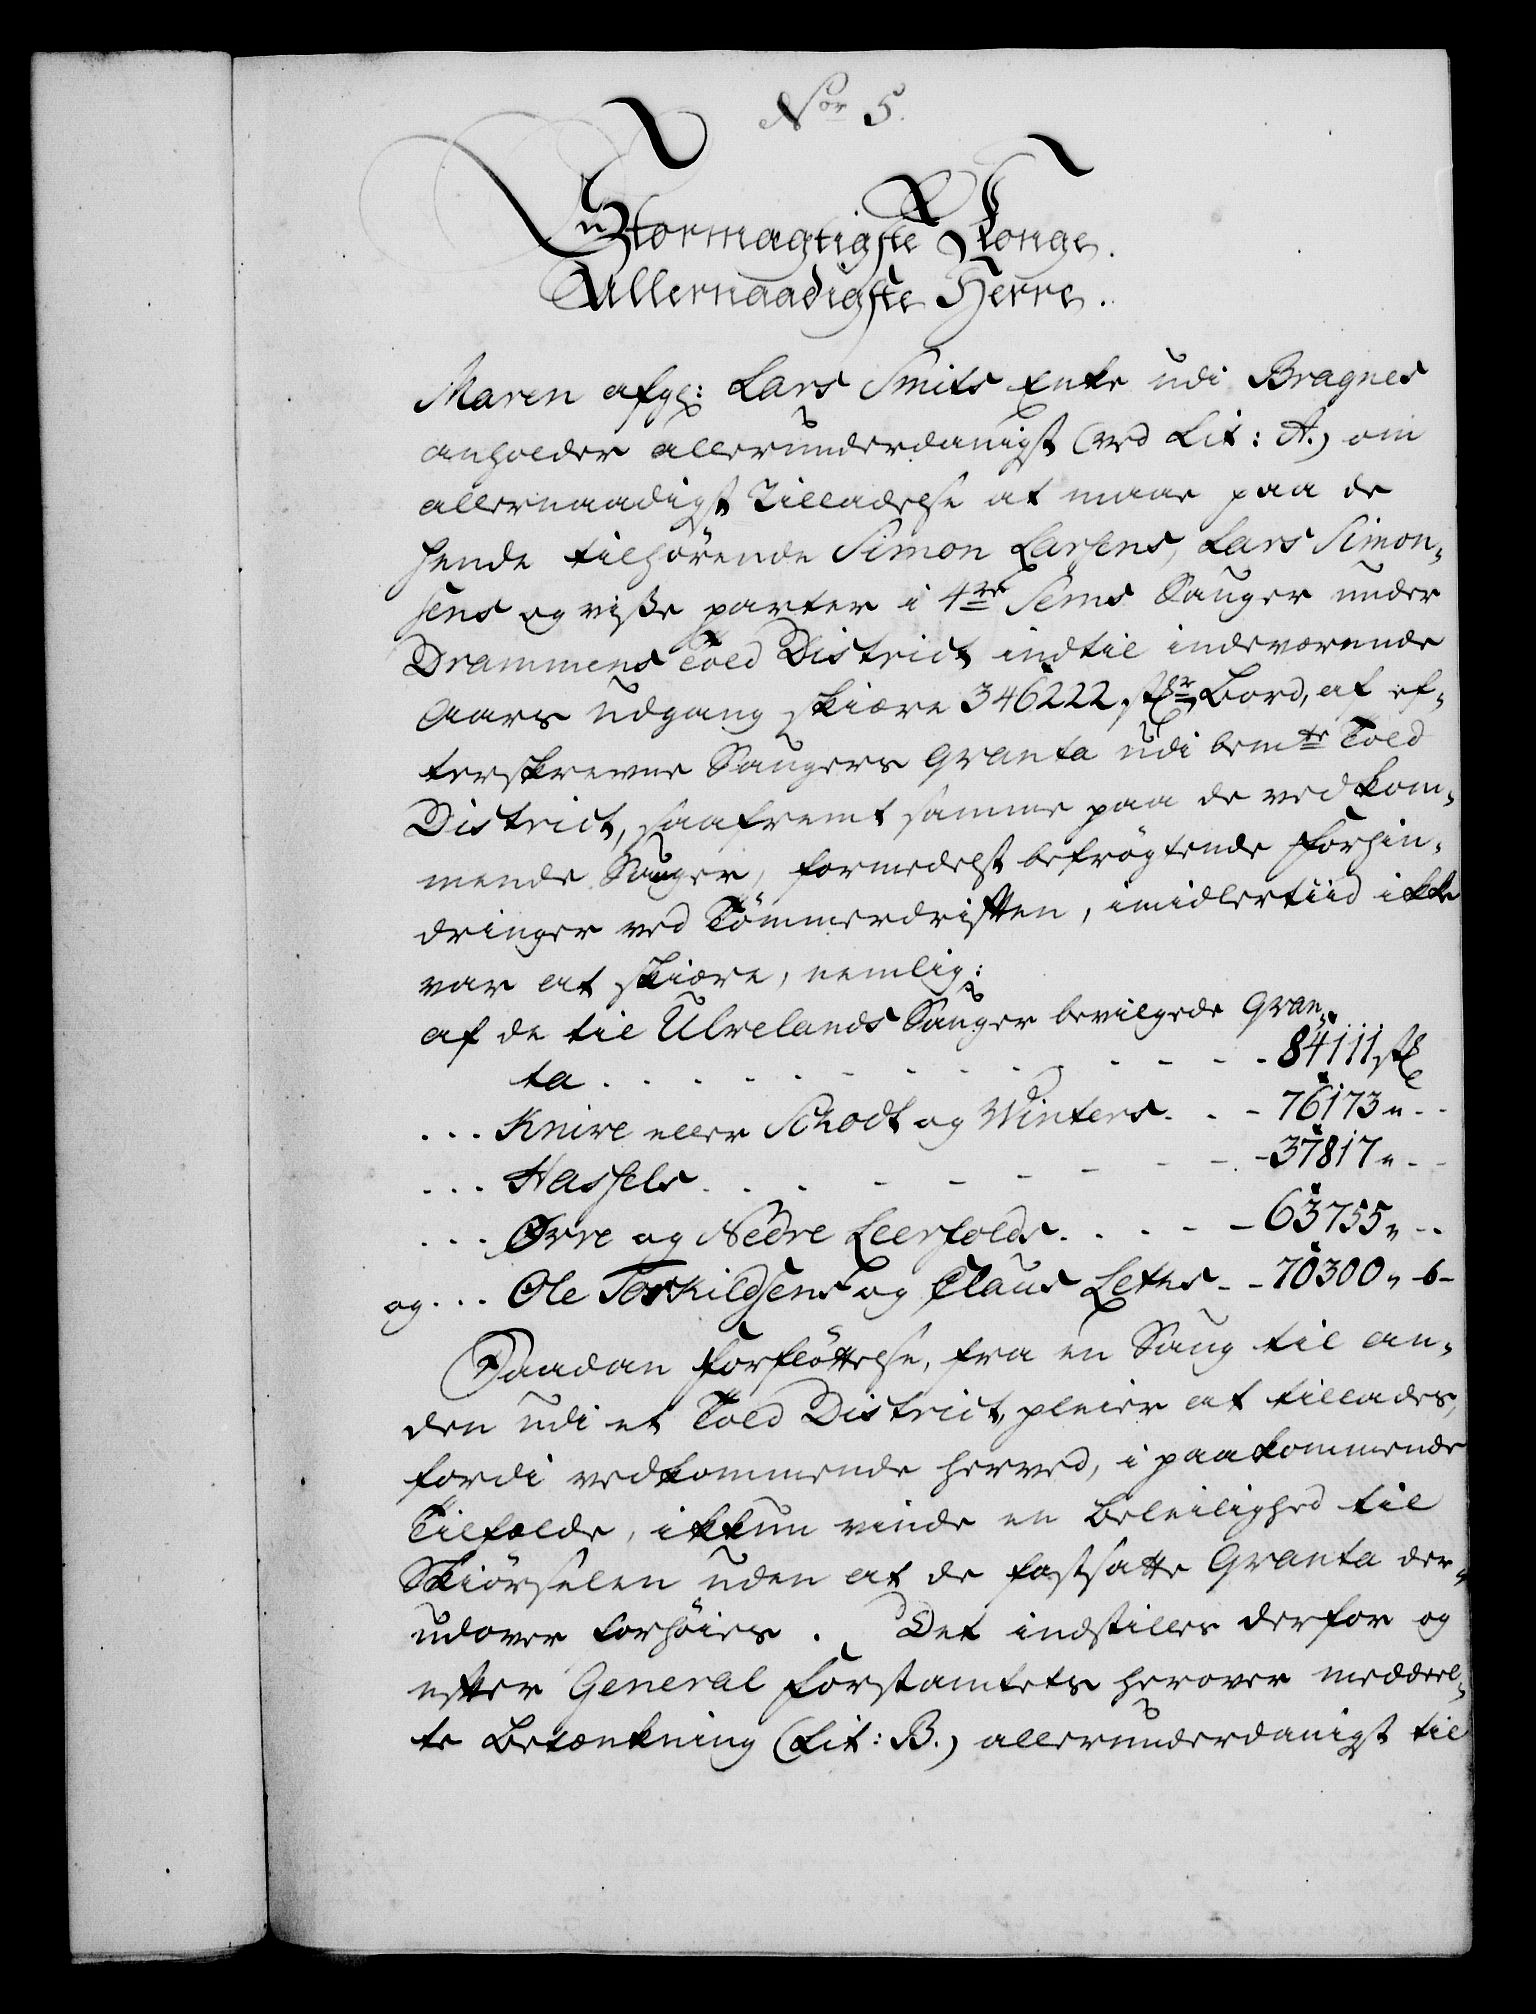 Nor 5.
Stormægtigste Konge.
Allernaadigste Herre.
Maren afg: Lars Smits Enke udi Bragnes
anholder allerunderdanigst (ved Lit: A.) om
allernaadigst Tilladelse at maae paa de
hende tilhørende Simon Larsens, Lars Simon-
sens og visse parter i 4re Sems Sauger under
Drammens Told District indtil indeværende
Aars Udgang skiære 346222 stkr Bord, af ef-
terskrevne Saugers qvanta udi bemte Told
District, saafremt samme paa de vedkom-
mende Sauger, formedelst befrögtende Forhin-
dringer ved Tömmerdriften, imidlertiid ikke
var at skiære, nemlig:
af de til Ulvelands Sauger bevilgede qvan-
ta . . . . . . . . . . - 84111 stk
. . . Knive eller Schodt og Winters . . - 76173 " - -
. . . Hassels . . . . . . . - 37817 " - -
. . . Øvre og Nedre Leerfolds . . . - 63755 " - -
og . . . Ole Torkildsens og Claus Leths - - 70300 " - 6 -
Saadan Forflöttelse, fra en Saug til an-
den udi et Told District, pleier at tillades,
fordi vedkommende herved, i paakommende
Tilfælde, ikkun vinde en Beleilighed til
Skiörselen uden at de fastsatte Qvanta der-
udover forhöies. Det indstilles derfor og
efter General Forstamtets herover meddeel-
te Betænkning (Lit: B.) allerunderdanigst til